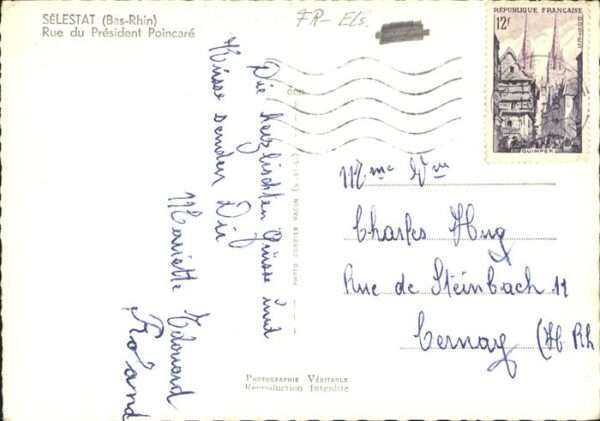 SÉLESTAT (Bas-Rhin)
Rue du Président Poincaré
FR- Els.
RÉPUBLIQUE FRANÇAISE
12f
QUIMPER
Die herzlischten Grüsse und
Küsse senden Dir
Mariette Edouard
Roland
Mme Vve
Charles Hug
Rue de Steinbach 11
Cernay (H Rh
PHOTOGRAPHIE VÉRITABLE
Reproduction Interdite